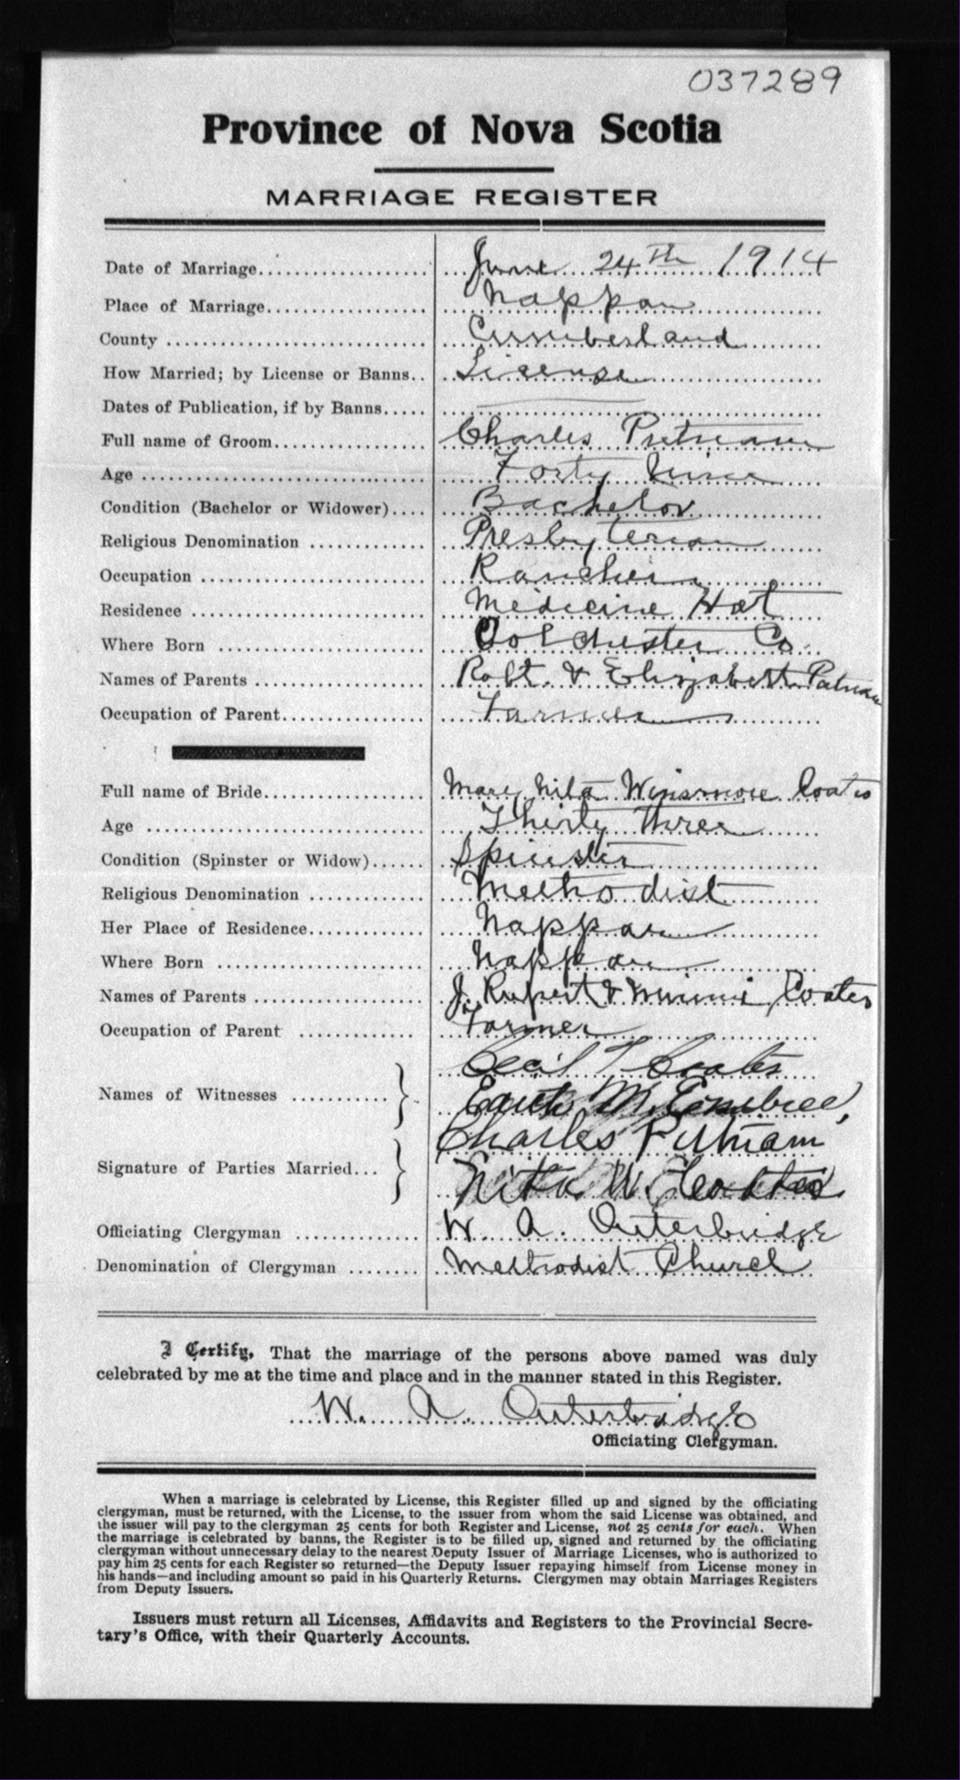 037289
Province of Nova Scotia
MARRIAGE REGISTER
Date of Marriage.................... June 24th 1914
Place of Marriage................... Nappan
County ............................ Cumberland
How Married; by License or Banns.. License
Dates of Publication, if by Banns.....
Full name of Groom.................. Charles Putnam
Age ............................... Forty Nine
Condition (Bachelor or Widower).... Bachelor
Religious Denomination ............. Presbyterian
Occupation ......................... Rancher
Residence .......................... Medicine Hat
Where Born ......................... Colchester Co.
Names of Parents ................... Robt. & Elizabeth Putnam
Occupation of Parent................ Farmer
Full name of Bride.................. Mary Nita Winsmore Coates
Age ............................... Thirty Three
Condition (Spinster or Widow)...... Spinster
Religious Denomination ............. Methodist
Her Place of Residence.............. Nappan
Where Born ......................... Nappan
Names of Parents ................... J. Rupert & Minnie Coates
Occupation of Parent ............... Farmer
Names of Witnesses ........... Cecil T Coates
M. Embree,
Signature of Parties Married... Charles Putnam
Nita W. Coates
Officiating Clergyman .............. W. A. Outerbridge
Denomination of Clergyman ........ Methodist Church
I Certify, That the marriage of the persons above named was duly
celebrated by me at the time and place and in the manner stated in this Register.
W. A. Outerbridge
Officiating Clergyman.
When a marriage is celebrated by License, this Register filled up and signed by the officiating
clergyman, must be returned, with the License, to the issuer from whom the said License was obtained, and
the issuer will pay to the clergyman 25 cents for both Register and License, not 25 cents for each. When
the marriage is celebrated by banns, the Register is to be filled up, signed and returned by the officiating
clergyman without unnecessary delay to the nearest Deputy Issuer of Marriage Licenses, who is authorized to
pay him 25 cents for each Register so returned—the Deputy Issuer repaying himself from License money in
his hands—and including amount so paid in his Quarterly Returns. Clergymen may obtain Marriages Registers
from Deputy Issuers.
Issuers must return all Licenses, Affidavits and Registers to the Provincial Secre-
tary's Office, with their Quarterly Accounts.